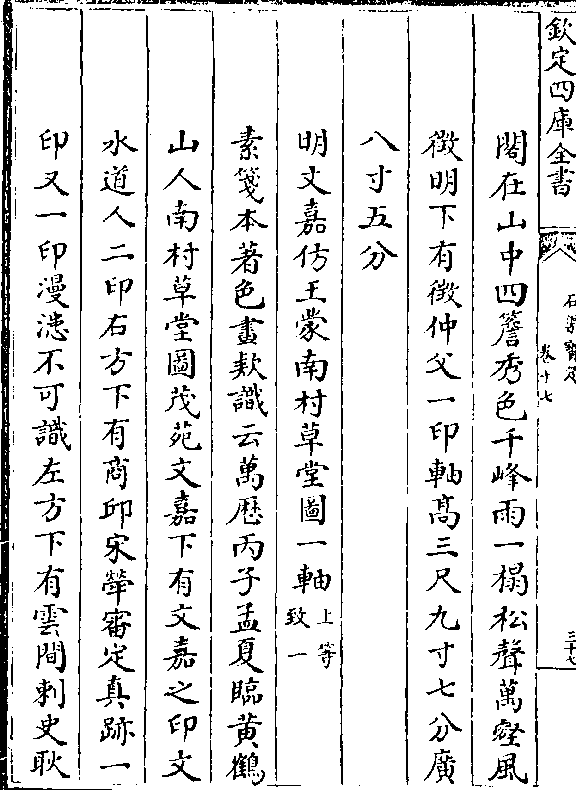 欽定四庫全書
石渠寶笈
卷十七
三十七
閣在山中四簷秀色千峰雨一榻松聲萬壑風
徵明下有徵仲父一印軸髙三尺九寸七分廣
八寸五分
明文嘉仿王蒙南村草堂圖一軸上等致一
素箋本著色畫欵識云萬歴丙子孟夏臨黄鶴
山人南村草堂圖茂苑文嘉下有文嘉之印文
水道人二印右方下有商邱宋犖審定真跡一
印又一印漫漶不可識左方下有雲間刺史耿